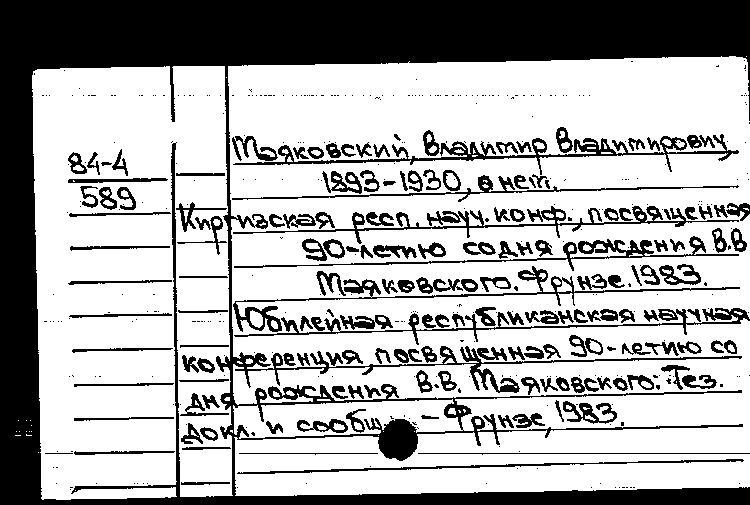 84-4
589
Маяковский, Владимир Владимирович,
1893-1930, о нем.
Киргизская респ. науч. конф., посвященная
90-летию со дня рождения В.В.
Маяковского. Фрунзе. 1983.
Юбилейная республиканская научная
конференция, посвященная 90-летию со
дня рождения В.В. Маяковского: Тез.
докл. и сообщ. – Фрунзе, 1983.